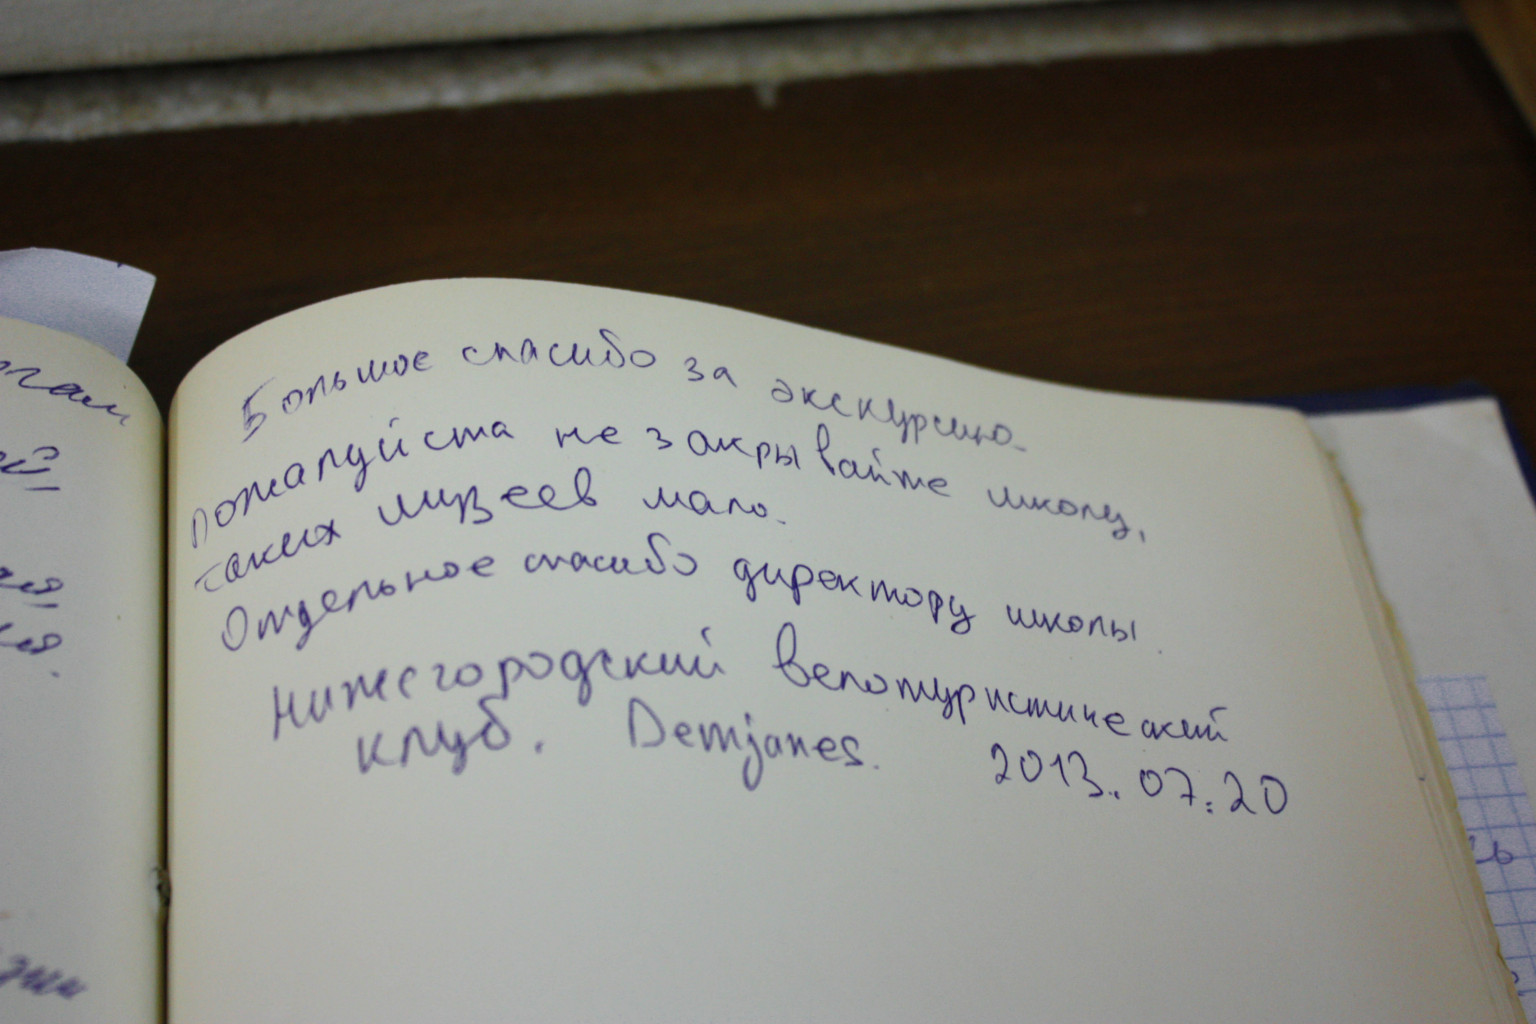 Большое спасибо за экскурсию.
Пожалуйста не закрывайте школу,
таких музеев мало.
Отдельное спасибо директору школы.
Нижегородский велотуристический
клуб. Demjanes. 2013.07.20